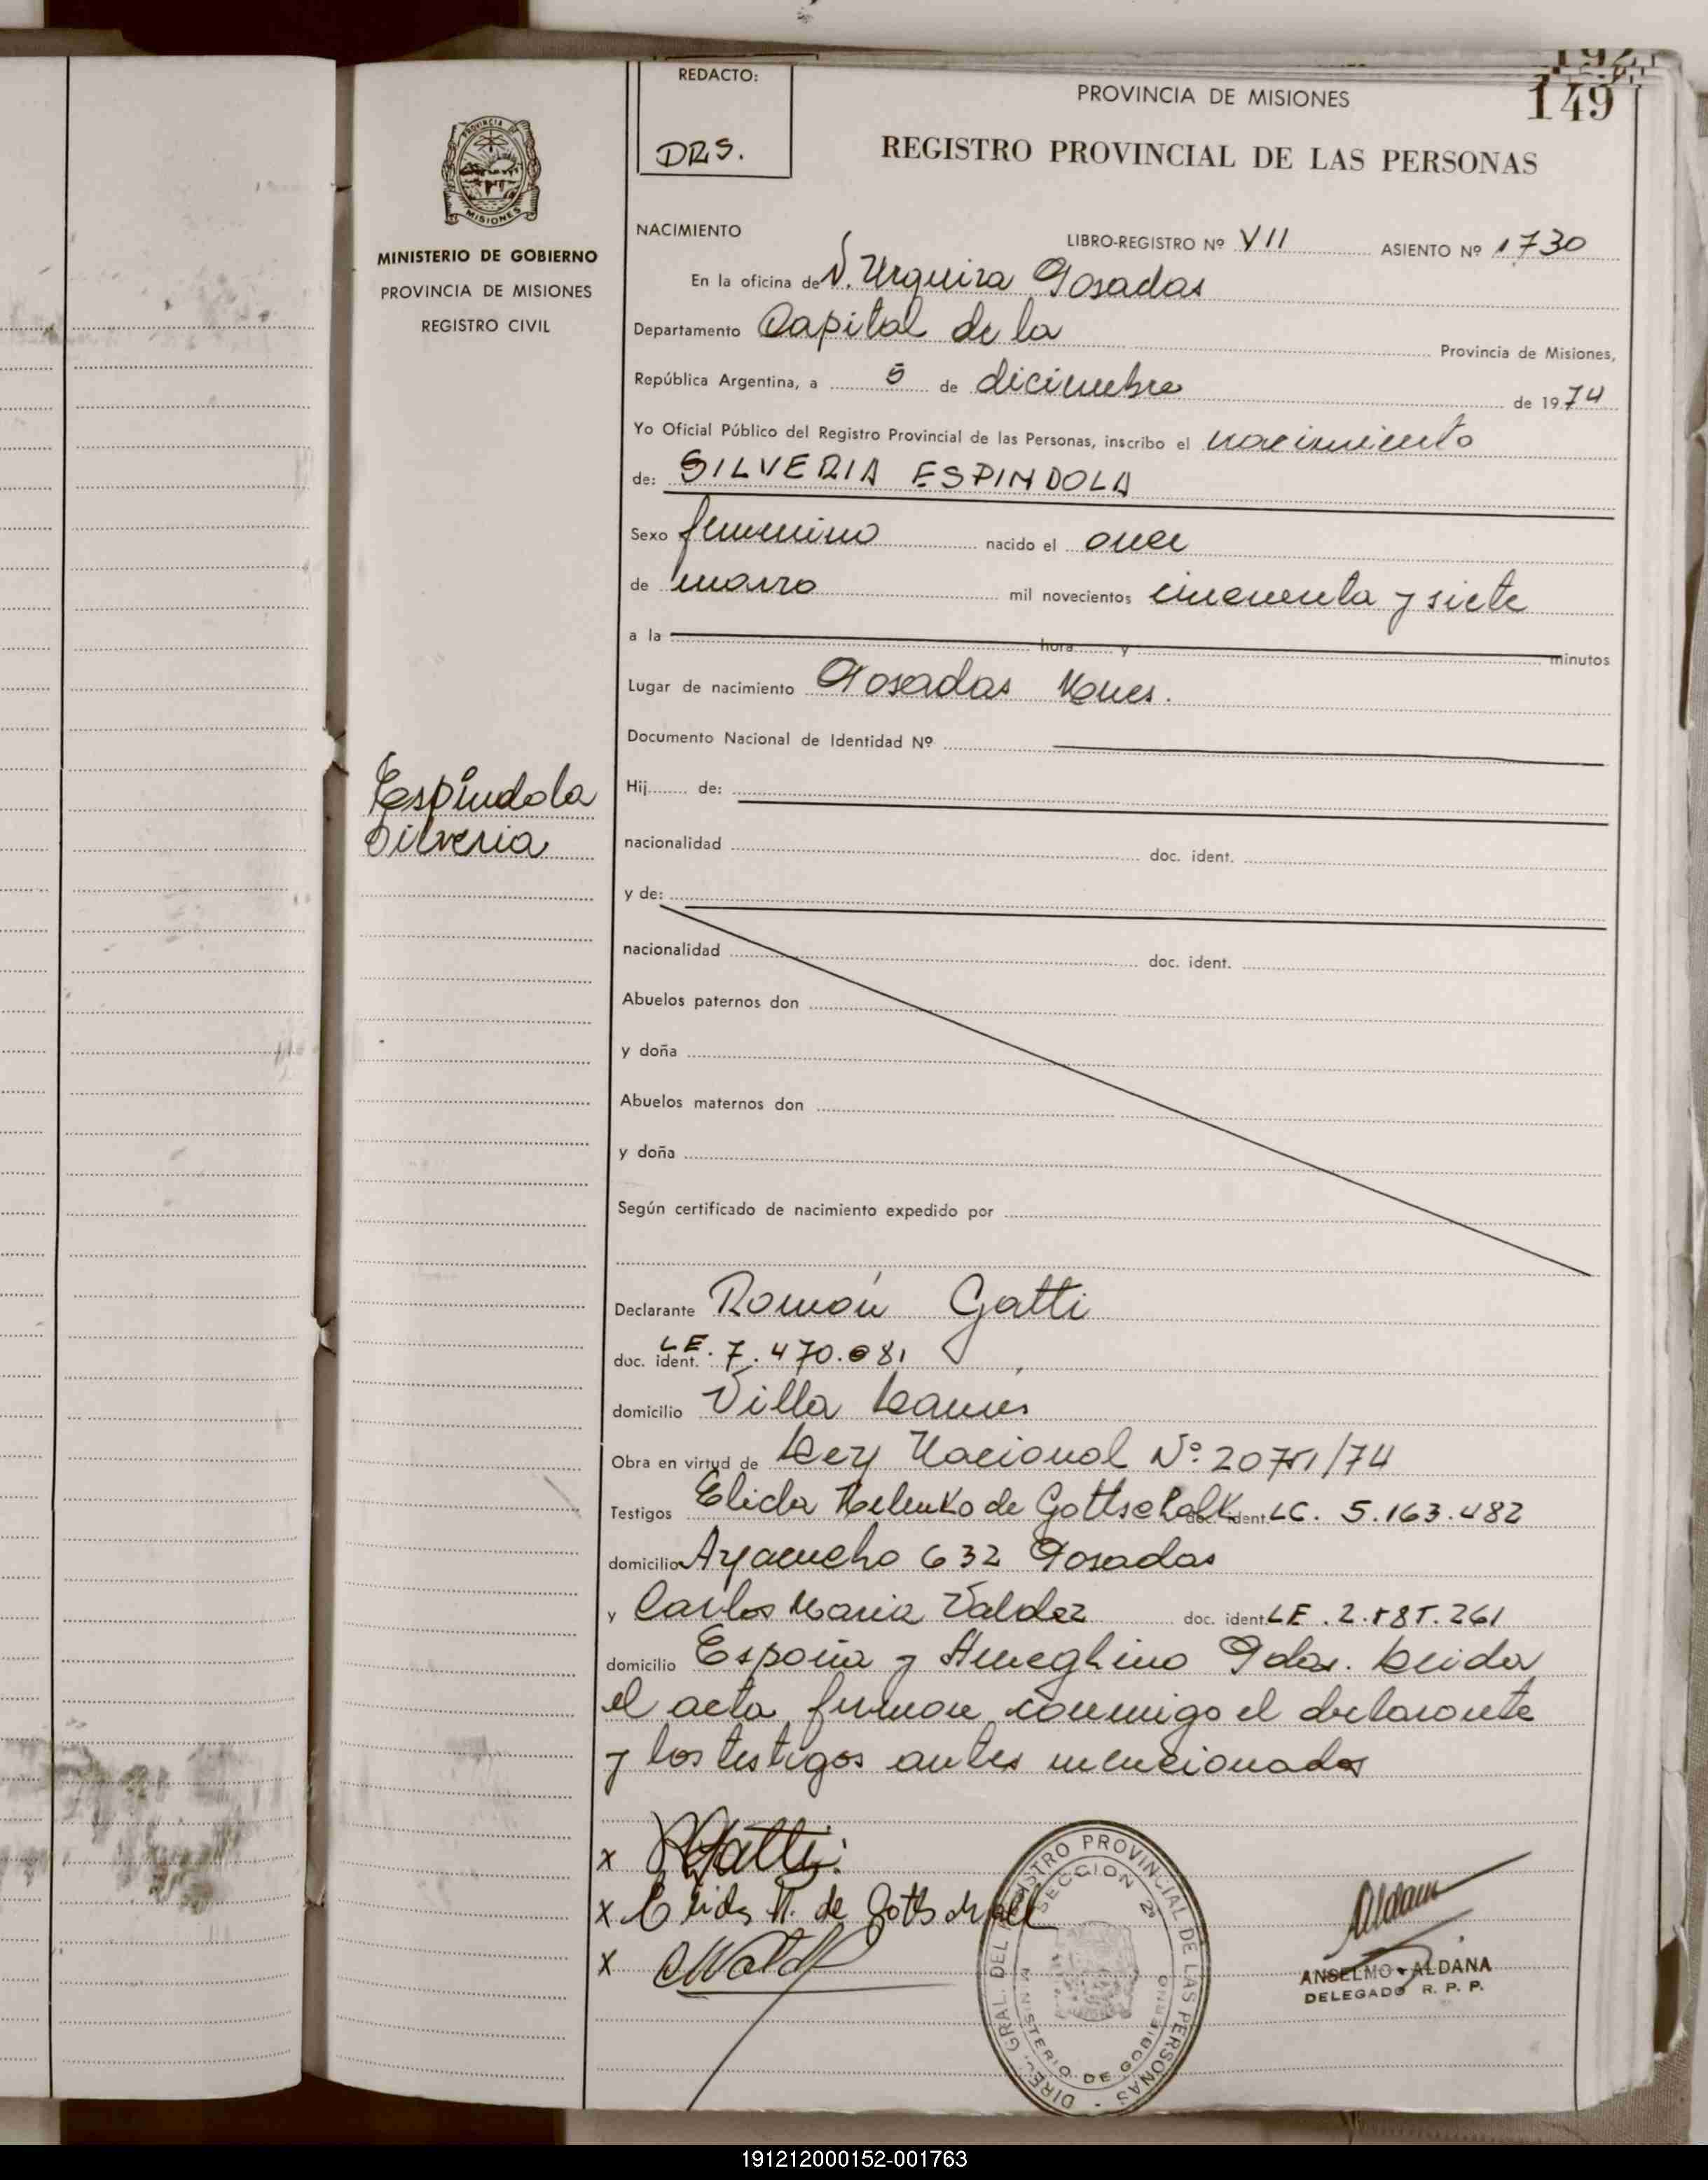 192
149
REDACTO:
DRS.
PROVINCIA DE MISIONES
REGISTRO PROVINCIAL DE LAS PERSONAS
PROVINCIA DE
MISIONES
MINISTERIO DE GOBIERNO
PROVINCIA DE MISIONES
REGISTRO CIVIL
NACIMIENTO
LIBRO-REGISTRO Nº VII ASIENTO Nº 1730
En la oficina de V. Urquiza Posadas
Departamento Capital de la Provincia de Misiones,
República Argentina, a 5 de diciembre de 1974
Yo Oficial Público del Registro Provincial de las Personas, inscribo el nacimiento
de: SILVERIA ESPINDOLA
Sexo femenino nacido el once
de marzo mil novecientos cincuenta y siete
a la hora y minutos
Lugar de nacimiento Posadas Mnes.
Documento Nacional de Identidad Nº
Espíndola
Silveria
Hij de:
nacionalidad doc. ident.
y de:
nacionalidad doc. ident.
Abuelos paternos don
y doña
Abuelos maternos don
y doña
Según certificado de nacimiento expedido por
Declarante Román Gatti
doc. ident. LE. 7.470.081
domicilio Villa
Obra en virtud de Ley Nacional Nº 20751/74
Testigos Elida de Gottschalk doc. ident. LC. 5.163.482
domicilio Ayacucho 632 Posadas
y Carlos Maria Valdez doc. ident. LE. 2.585.261
domicilio España y Ameghino Pdas. Leida
el acta firman conmigo el declarante
y los testigos antes mencionados
x Gatti
x Elida M. de Gottschalk
x
DIREC. GRAL. DEL REGISTRO PROVINCIAL DE LAS PERSONAS
SECCION 2º
MINISTERIO DE GOBIERNO
Aldana
ANSELMO ALDANA
DELEGADO R. P. P.
191212000152-001763